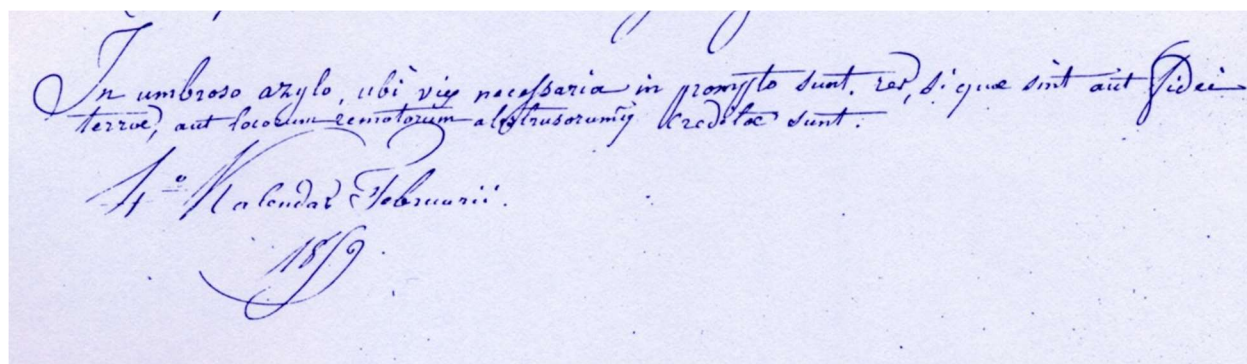 In umbroso azylo, ubi vix necessaria in prompto sunt. res, si quæ sint aut Fidei
terræ, aut locorum remotorum abstrusorumq̃ creditæ sunt.
4º Kalendas Februarii.
1859